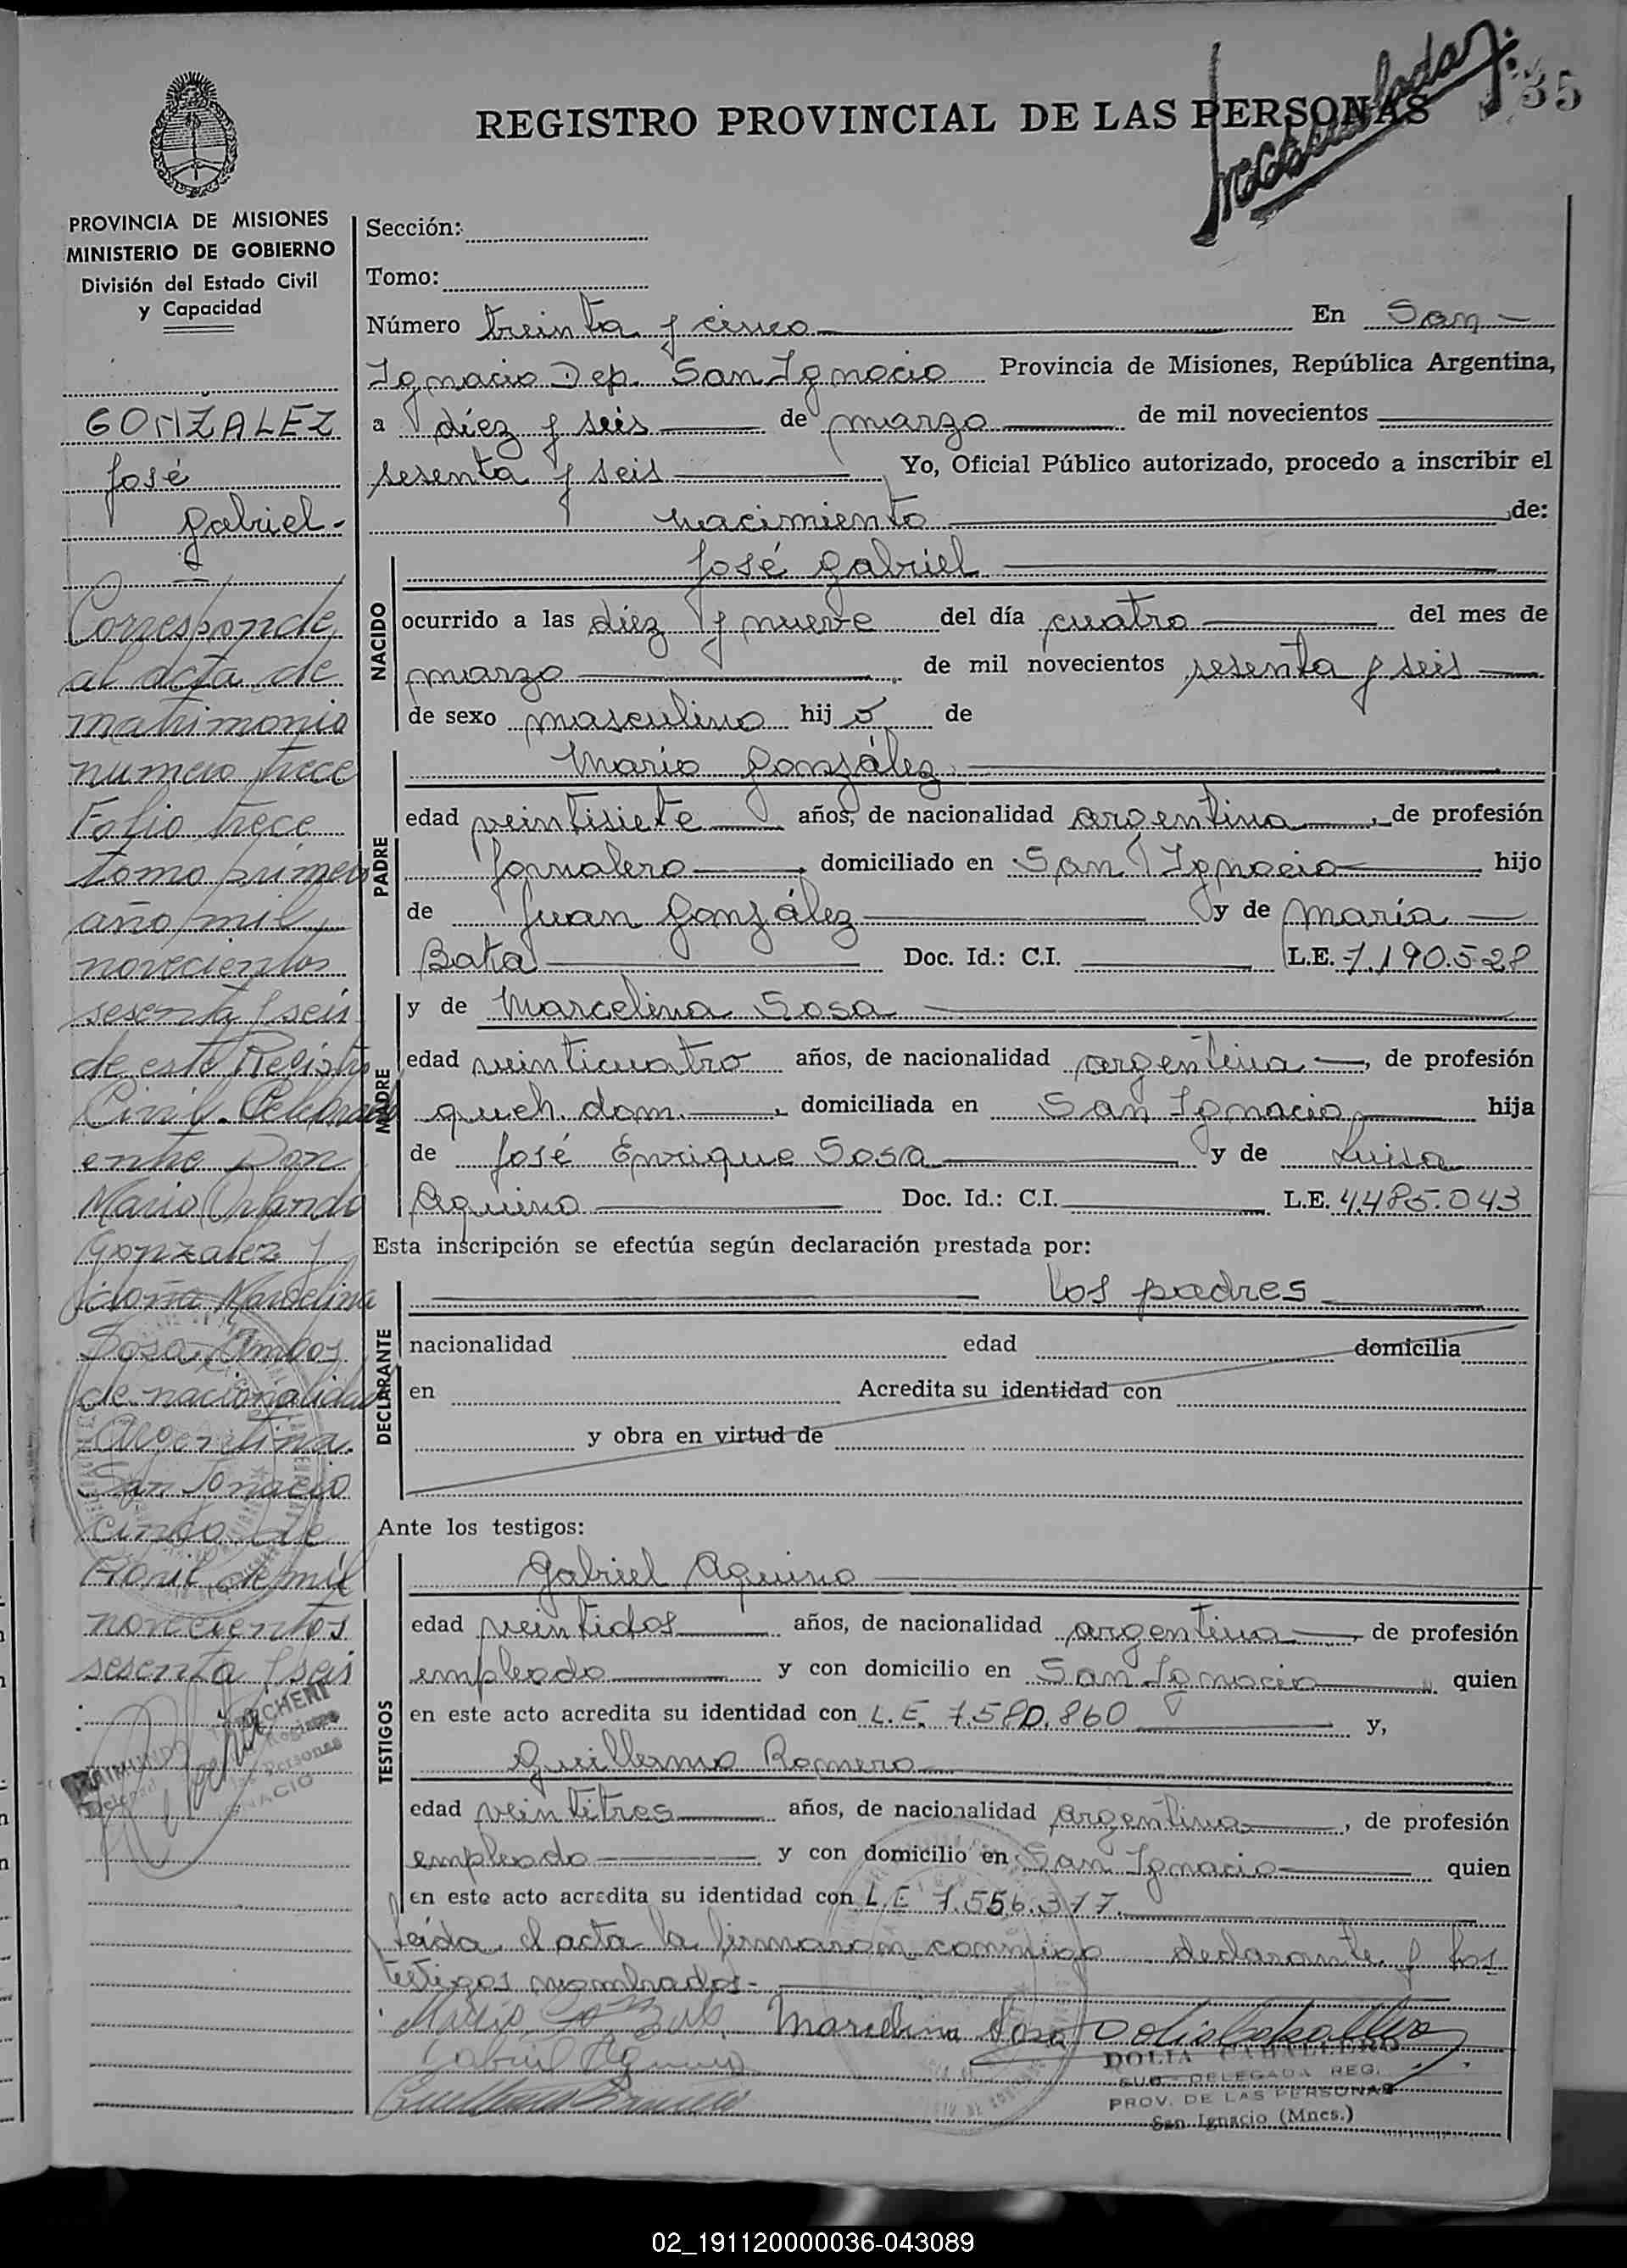 Inmaculada
35
REGISTRO PROVINCIAL DE LAS PERSONAS
PROVINCIA DE MISIONES
MINISTERIO DE GOBIERNO
División del Estado Civil
y Capacidad
GONZALEZ
José
Gabriel.-
Corresponde
al acta de
matrimonio
numero trece
Folio trece
tomo primero
año mil
novecientos
sesenta y seis
de este Registro
Civil. Celebrado
entre Don
Mario Orlando
Gonzalez y
doña Marcelina
Sosa. Ambos
de nacionalidad
Argentina.
San Ignacio
cinco de
Abril de mil
novecientos
sesenta y seis
Sección:
Tomo:
Número treinta y cinco En San
Ignacio Dep. San Ignacio Provincia de Misiones, República Argentina,
a diéz y seis de marzo de mil novecientos
sesenta y seis Yo, Oficial Público autorizado, procedo a inscribir el
nacimiento de:
NACIDO
José Gabriel
ocurrido a las diéz y nueve del día cuatro del mes de
marzo de mil novecientos sesenta y seis
de sexo masculino hij o de
PADRE
Mario González
edad veintisiete años, de nacionalidad argentina, de profesión
jornalero, domiciliado en San Ignacio hijo
de Juan González y de María
Bata Doc. Id.: C.I. L.E. 7.190.528
MADRE
y de Marcelina Sosa
edad veinticuatro años, de nacionalidad argentina, de profesión
queh. dom., domiciliada en San Ignacio hija
de José Enrique Sosa y de Luisa
Aquino Doc. Id.: C.I. L.E. 4.485.043
Esta inscripción se efectúa según declaración prestada por:
DECLARANTE
los padres
nacionalidad edad domicilia
en Acredita su identidad con
y obra en virtud de
Ante los testigos:
TESTIGOS
Gabriel Aquino
edad veintidos años, de nacionalidad argentina, de profesión
empleado y con domicilio en San Ignacio quien
en este acto acredita su identidad con L.E. 7.580.860 y,
Guillermo Romero
edad veintitres años, de nacionalidad argentina, de profesión
empleado y con domicilio en San Ignacio quien
en este acto acredita su identidad con L.E 7.556.317.
Leída el acta la firmaron conmigo declarante y los
testigos nombrados.-
Marcelina Sosa
Gabriel Aquino
DOLIA CABALLERO
SUB-DELEGADA REG.
PROV. DE LAS PERSONAS
San Ignacio (Mnes.)
02_191120000036-043089